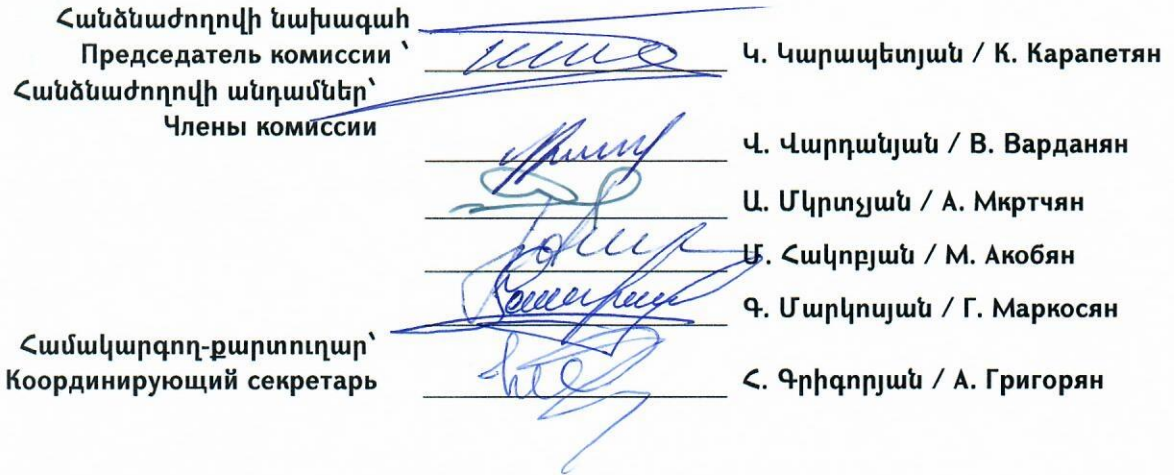 Հանձնաժողովի նախագահ
Председатель комиссии ՝ Կ. Կարապետյան / К. Карапетян
Հանձնաժողովի անդամներ՝
Члены комиссии
Վ. Վարդանյան / В. Варданян
Ա. Մկրտչյան / А. Мкртчян
Մ. Հակոբյան / М. Акобян
Գ. Մարկոսյան / Г. Маркосян
Համակարգող-քարտուղար՝
Координирующий секретарь Հ. Գրիգորյան / А. Григорян